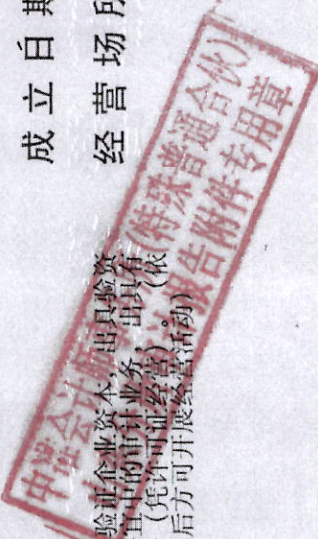 成立日期
经营场所
验证企业资本，出具验资
宜中的审计业务，出具有
（凭许可证经营）。（依
后方可开展经营活动）
会计师 所(特殊普通合伙)
报告附件专用章